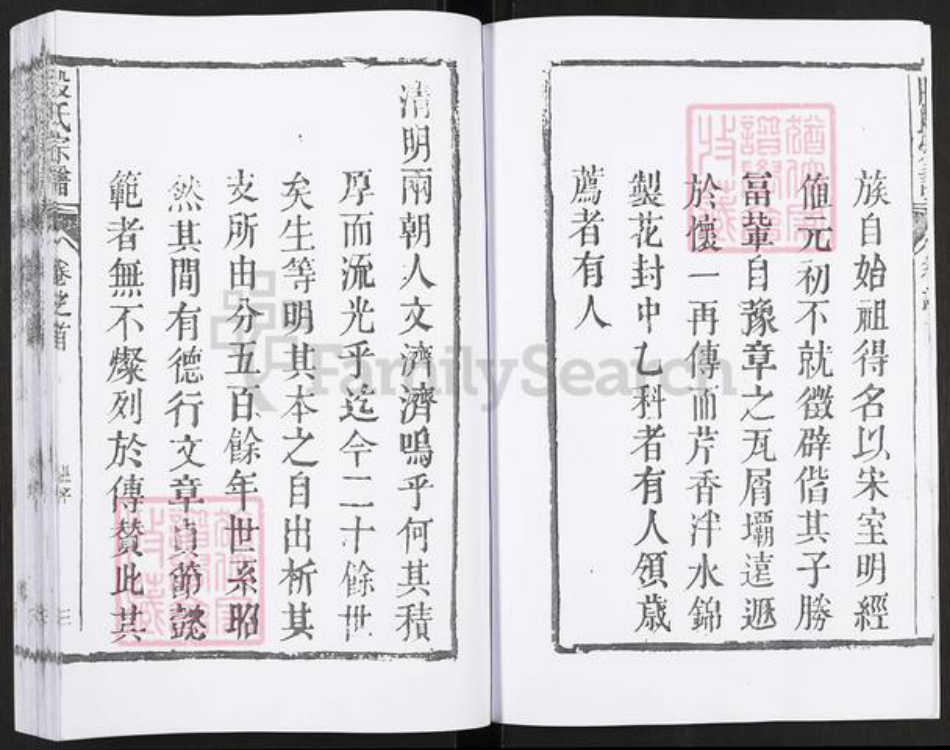 族自始祖得名以宋室明經
值元初不就徵辟偕其子勝
富輩自豫章之瓦屑壩遠遯
於懷一再傳而芹香泮水錦
製花封中乙科者有人領歲
薦者有人
清明兩朝人文濟濟嗚乎何其積
厚而流光乎迄今二十餘世
矣生等明其本之自出析其
支所由分五百餘年世系昭
然其間有德行文章貞節懿
範者無不燦列於傳贊此其
殷氏宗譜
卷之首
三
FamilySearch